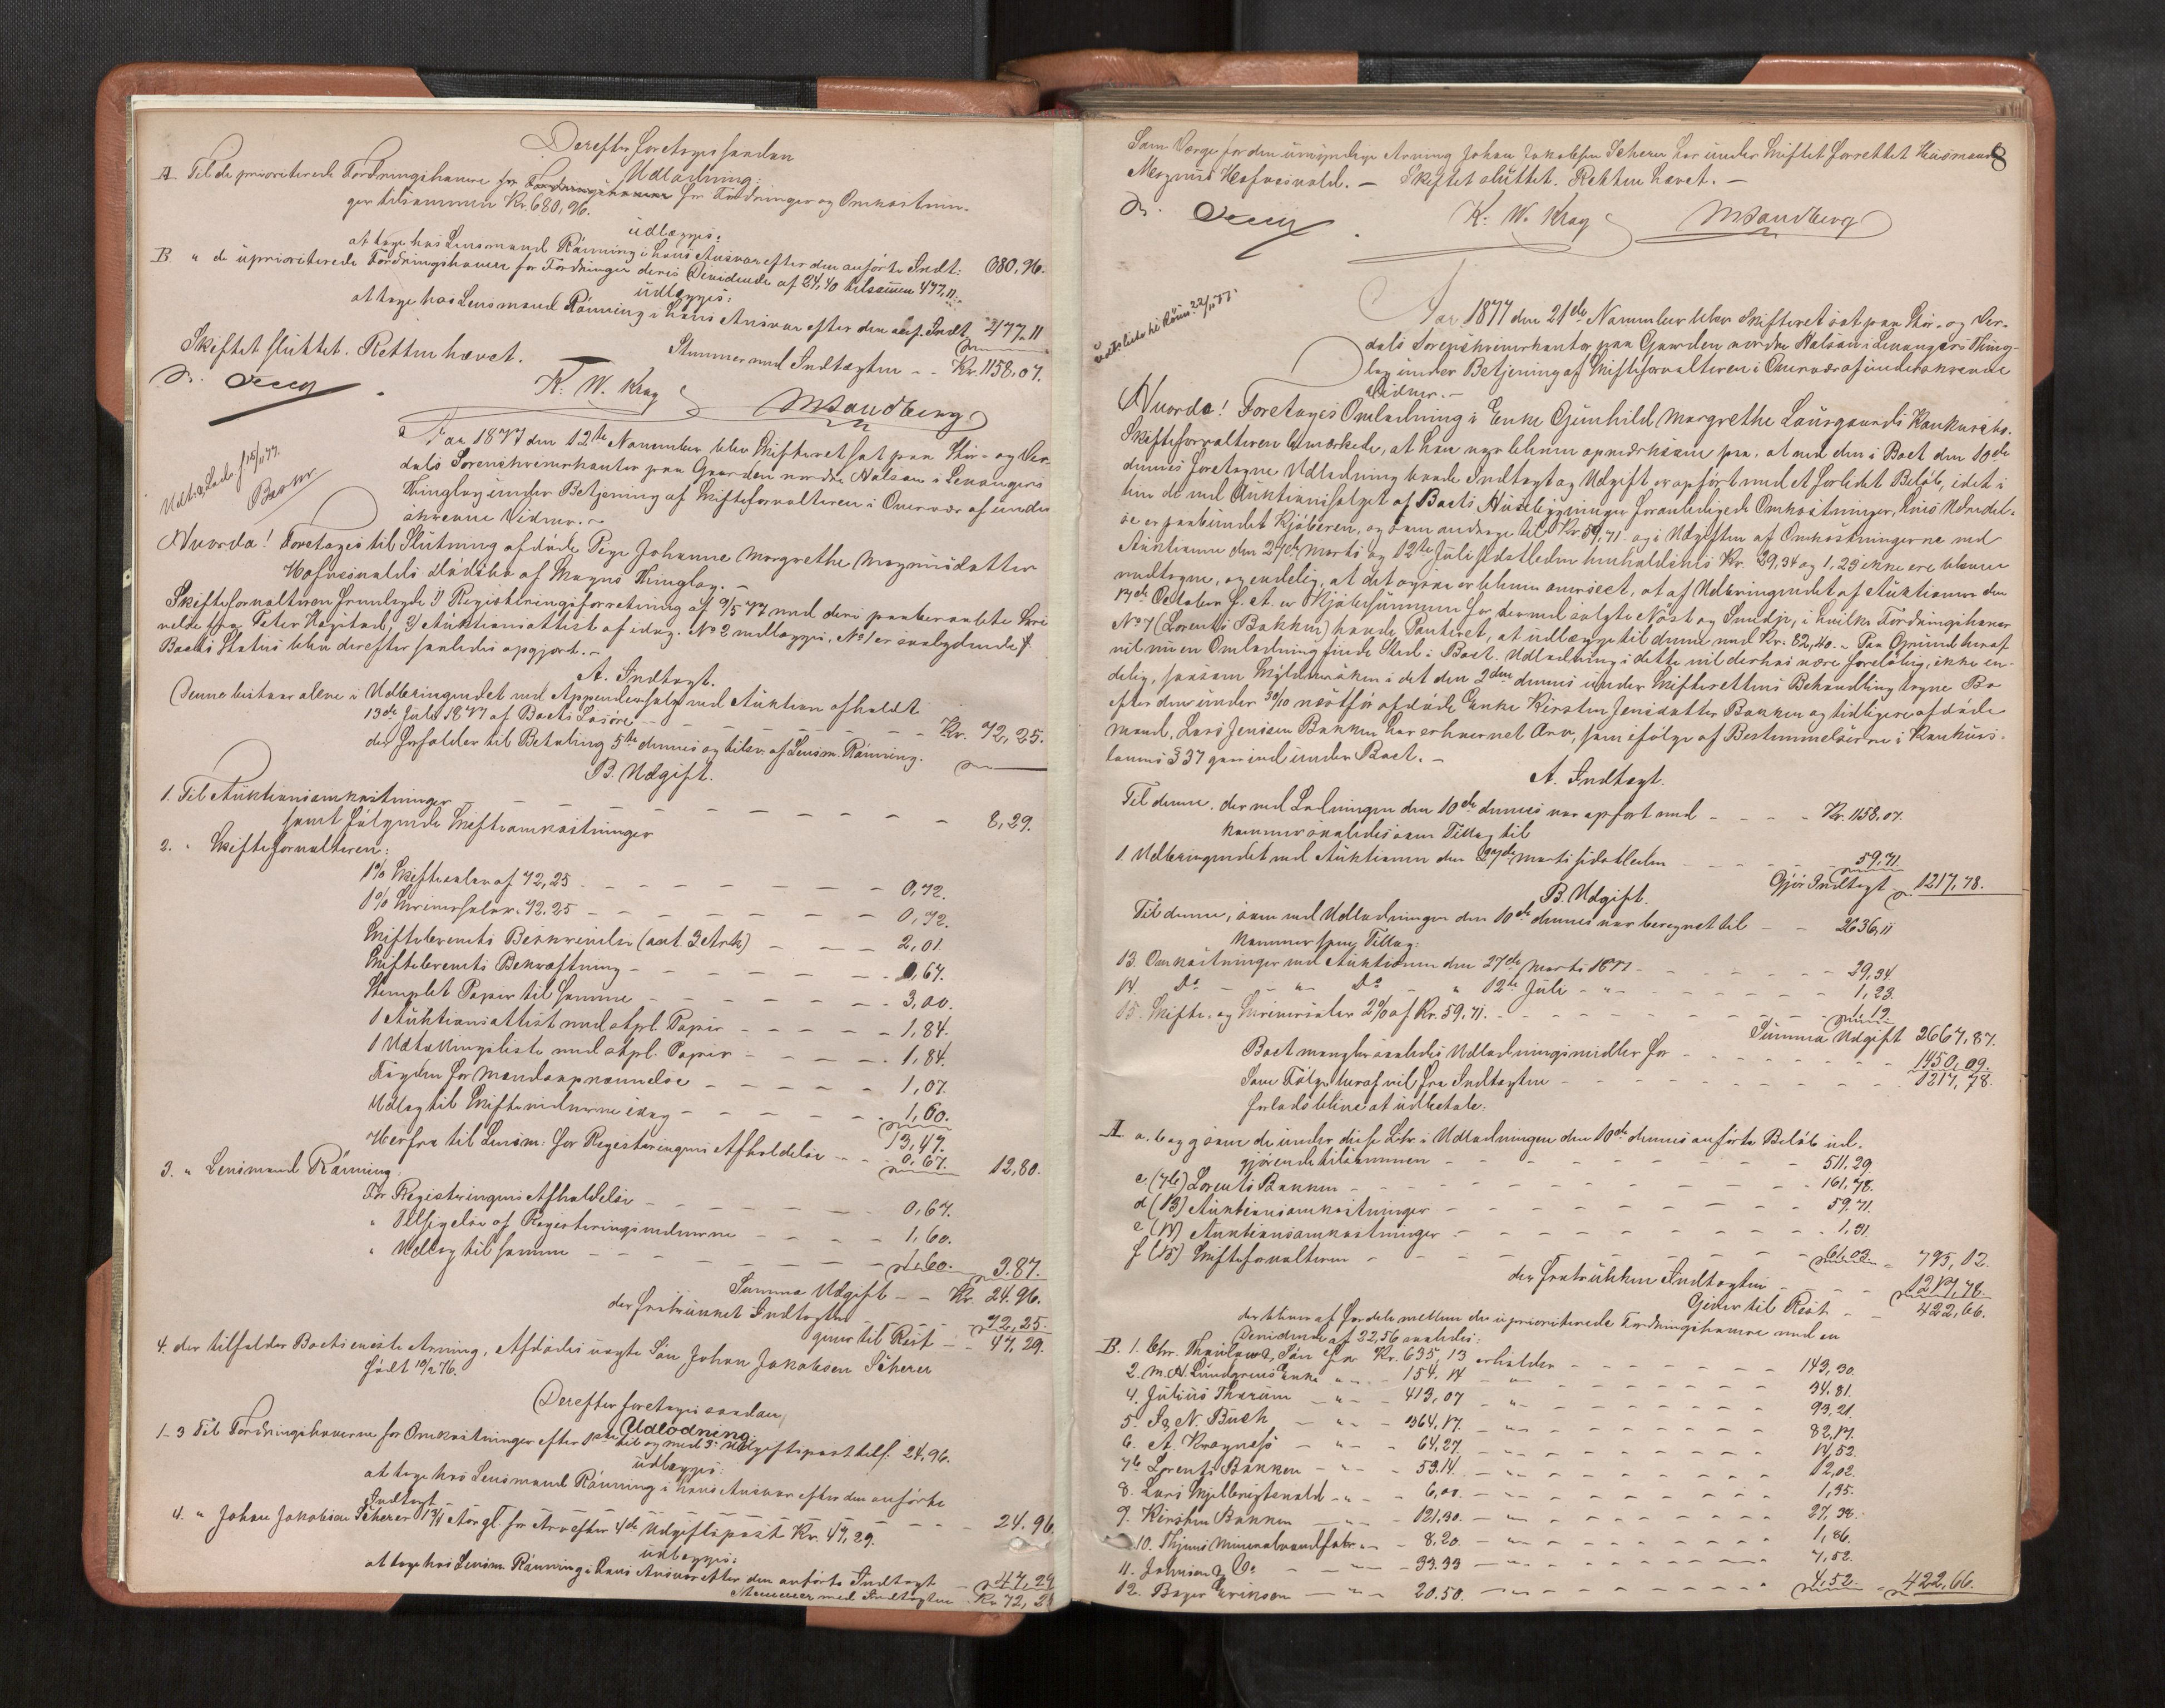 Derefter foretoges saadan
Udlodning:
A. Til de prioriterede Fordringshavere for Fordringshavere for Fordringer og Omkostnin-
ger tilsammen Kr. 680,96.
udlægges:
at tage hos Lensmand Rönning i hans Ansvar efter den anförte Indt: 680,96.
B. " de uprioriterede Fordringshavere for Fordringer deres Dividende af 24,40 tilsammen 477,11.
udlægges:
at tage hos Lensmand Rönning i hans Ansvar efter den anf. Indt 477,11
Stemmer med Indtægten - - Kr. 1158,07.
Skiftet sluttet. Retten hævet.
K. W. Krag
M Sandberg
Aar 1877 den 12te November blev Skifteret sat paa Stör- og Vær-
dals Sorenskriverkontor paa Gaarden nordre Halsan i Levangers
Thinglag under Betjening af Skifteforvalteren i Overvær af under
skrevne Vidner. -
Nvorda! Foretoges til Slutning afdöde Pige Johanne Margrethe Magnusdatter
Hofnesvalds Dödsbo af Magus Thinglag. -
Skifteforvalteren fremlagde 1) Registreringsforretning af 9/5 77 med deri paaberaabte Skri
velse fra Peter Hagstad, 2) Auktionsattist af idag. No 2 vedlægges, No 1 er saalydende
Boets Status blev derefter saaledes opgjort. -
A. Indtægt.
Denne bestaar alene i Udbringendet ved Auktion afholdt
13de Juli 1877 af Boets Lösöre - - - - - Kr. 72,25.
der forfalder til Betaling 5te dennes og tilsv. af Lensm. Rönning.
B. Udgift.
1. Til Auktionsomkostninger - - - - - 8,29.
samt fölgende Skifteomkostninger
2. " Skifteforvalteren:
1% Skiftesalær af 72,25 - - - - - 0,72.
1% Skriversalær. 72.25 - - - - - 0,72.
Skiftebrevets Beskrivelse (ant. 3 Ark) - - - 2,01.
Skiftebrevets Bekræftning - - - - - 0,67.
Stemplet Papir til samme - - - - - 3,00.
1 Auktionsattist med stpl. Papir - - - - - 1,84.
1 Udtællingsliste med stpl. Papir - - - - 1,84.
Fogden for Mandsopnævnelse - - - - - 1,07.
Udlæg til Skiftevidnerne idag - - - - - 1,60.
13,47.
Herfra til Lensm: for Registreringens Afholdelse - - 0,67. 12,80.
3. " Lensmand Rönning.
For Registreringens Afholdelse - - - - - 0,67.
" Tilsigelse af Registreringsvidnerne - - - - 1,60.
" Udlæg til samme - - - - - 1,60. 3.87.
Summa Udgift - - Kr. 24.96.
der fratrukket Indtægten 72,25.
giver til Rest - - 47,29.
4. der tilfalder Boets eneste Arving, Afdödes uægte Sön Johan Jakobsen Scherer
födt 10/2 76.
Derefter foretoges saadan
Udlodning:
1-3 Til Fordringshaverne for Omkostninger efter 1ste til og med 3die Udgiftspost tils. 24,96.
udlægges:
at tage hos Lensmand Rönning i hans Ansvar efter den anförte
Indtægt - - - - - 24.96
4. " Johan Jakobsen Scherer 1 3/4 Aar gl. for Arv efter 4de Udgiftspost Kr. 47,29.
udlægges:
at tage hos Lensm. Rönning i hans Ansvar efter den anförte Indtægt - 47,29
Stemmer med Indtægten - Kr 72,2
8
Som Værge for den umyndige Arving Johan Jakobsen Scherer har under Skiftet forrettet Husmand
Magnus Hofnesvald. - Skiftet sluttet. Retten hævet. -
K. W. Krag
M Sandberg
Aar 1877 den 21de November blev Skifteret sat paa Stör- og Vær-
dals Sorenskriverkontor paa Gaarden nordre Halsan i Levangers Thing-
lag under Betjening af Skifteforvalteren i Overvær af underskrevne
Vidner. -
Nvorda! Foretoges Omlodning i Enke Gunhild Margrethe Laursgaards Konkursbo.
Skifteforvalteren bemærkede, at han var bleven opmærksom paa, at ved den i Boet den 10de
dennes foretagne Udlodning baade Indtægt og Udgift er opfört med et forlidet Belöb, idet i
hin de ved Auktionssalget af Boets Husebygninger foranledigede Omkostninger, hvis Udredel-
se er paabundet Kjöberen, og som andrage til Kr. 59,71. og i Udgiften af Omkostningerne ved
Auktionerne den 27de Marts og 12te Juli sidstleden henholdsvis Kr. 29,34 og 1,23 ikke ere blevne
medtagne, og endelig, at det ogsaa er bleven overseet, at af Udbringendet af Auktionen den
17de Oktober s. A. er Kjöbesummen for derved solgte Nöst og Smidje, i hvilke Fordringshaver
No 7 (Lorents Bakken) havde Panteret, at udlægge til denne med Kr. 82,40. - Paa Grund heraf
vil nu en Omlodning finde Sted i Boet. Udlodning i dette vil derhos være foreløbig, ikke en-
delig, saasom Skyldnersken i det den 2den dennes under Skifterettens Behandling tagne Bo
efter den under 30/10 næstfør afdöde Enke Kirsten Jensdatter Bakken og tidligere afdöde
Mand, Lars Jensen Bakken har erhvervet Arv, som ifölge af Bestemmelserne i Konkurs-
lovens § 37 gaar ind under Boet. -
A. Indtægt.
Til denne. der ved Lodningen den 10de dennes var opfört med - - - - Kr. 1158,07.
kommer saaledes som Tillæg til
1. Udbringendet ved Auktionen den 27de Marts sidstleden - - - 59,71.
Gjör Indtægt 1217,78.
B. Udgift.
Til denne, som ved Udlodningen den 10de dennes var beregnet til - - 2636,11
kommer som Tillæg:
13. Omkostninger ved Auktionen den 27de Marts 1877 - - - - - 29,34
14. Do - " - Do - " 12te Juli - " - - - - 1,23.
15. Skifte- og Skriversalær 2% af Kr. 59,71. - - - - - 1,19.
Summa Udgift 2667,87.
Boet mangler saaledes Udlodningsmidler for - - - - - 1450,09.
Som Fölge heraf vil fra Indtægten - - - - - 1217,78.
forlods blive at udbetale:
A a. b og g som de under disse Litr. i Udlodningen den 10de dennes anförte Belöb ud-
gjörende tilsammen - - - - - 511.29
c. (7b) Lorents Bakken - - - - - 161.78.
d (13) Auktionsomkostninger - - - - - 59.71.
e (14) Auktionsomkostninger - - - - - 1,31.
f (15) Skifteforvalteren - - - - - 61,03. - 795,12.
der fratrukken Indtægten - 1217,78
Giver til Rest - 422,66.
der bliver at fordele mellem de uprioriterede Fordringshavere med en
Dividende af 22,56 saaledes:
B. 1. Chr. Thaulow & Sön for Kr. 635,13 erholder - - - - - 143,30.
2. M. A. Lundgreens Enke " - 154.14 - " - - - - - 34.81.
4. Julius Thurum - " - 413,07 - " - - - - - 93,21.
5. I & N. Buch - " - 364,17. - " - - - - - 82,17.
6. A. Kragness - " - 64,27. - " - - - - - 14,52.
7b Lorents Bakken - " - 53.14. - " - - - - - 12,02.
8. Lars Hjelbrigtsvald - " - 6,00. - " - - - - - 1,35.
9. Kirsten Bakken - " - 121,30. - " - - - - - 27,38.
10. Thjems Mineralvandfabr " - 8,20. - " - - - - - 1,86.
11. Johnsen & Co - " - 33.33 - " - - - - - 7,52.
12. Beger Eriksen - " - 20.50. - " - - - - - 4,52. - 422,66.